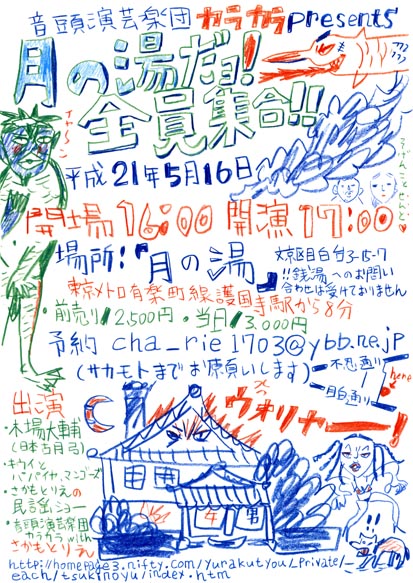 音頭演芸楽団カラカラpresents
月の湯だョ!
全員集合!!
平成21年5月16日
開場16:00 開演17:00
場所:『月の湯』
文京区目白台3-15-7
!!銭湯へのお問い
合わせは受けておりません
東京メトロ有楽町線護国寺駅から8分
・前売り/2,500円・当日/3,000円
予約 cha_rie1703@ybb.ne.jp
(サカモトまでお願いします)
不忍通り
目白通り
here
出演
・木場大輔
(日本古月弓)
・キウイと
パパイヤ、マンゴーズ
・さかもとりえの
民謡ショー
・音頭演芸楽団
カラカラ with
さかもとりえ
ウオリャー!
女 男
http://homepage3.nifty.com/yurakutyou/private/
each/tsukinoyu/index.htm